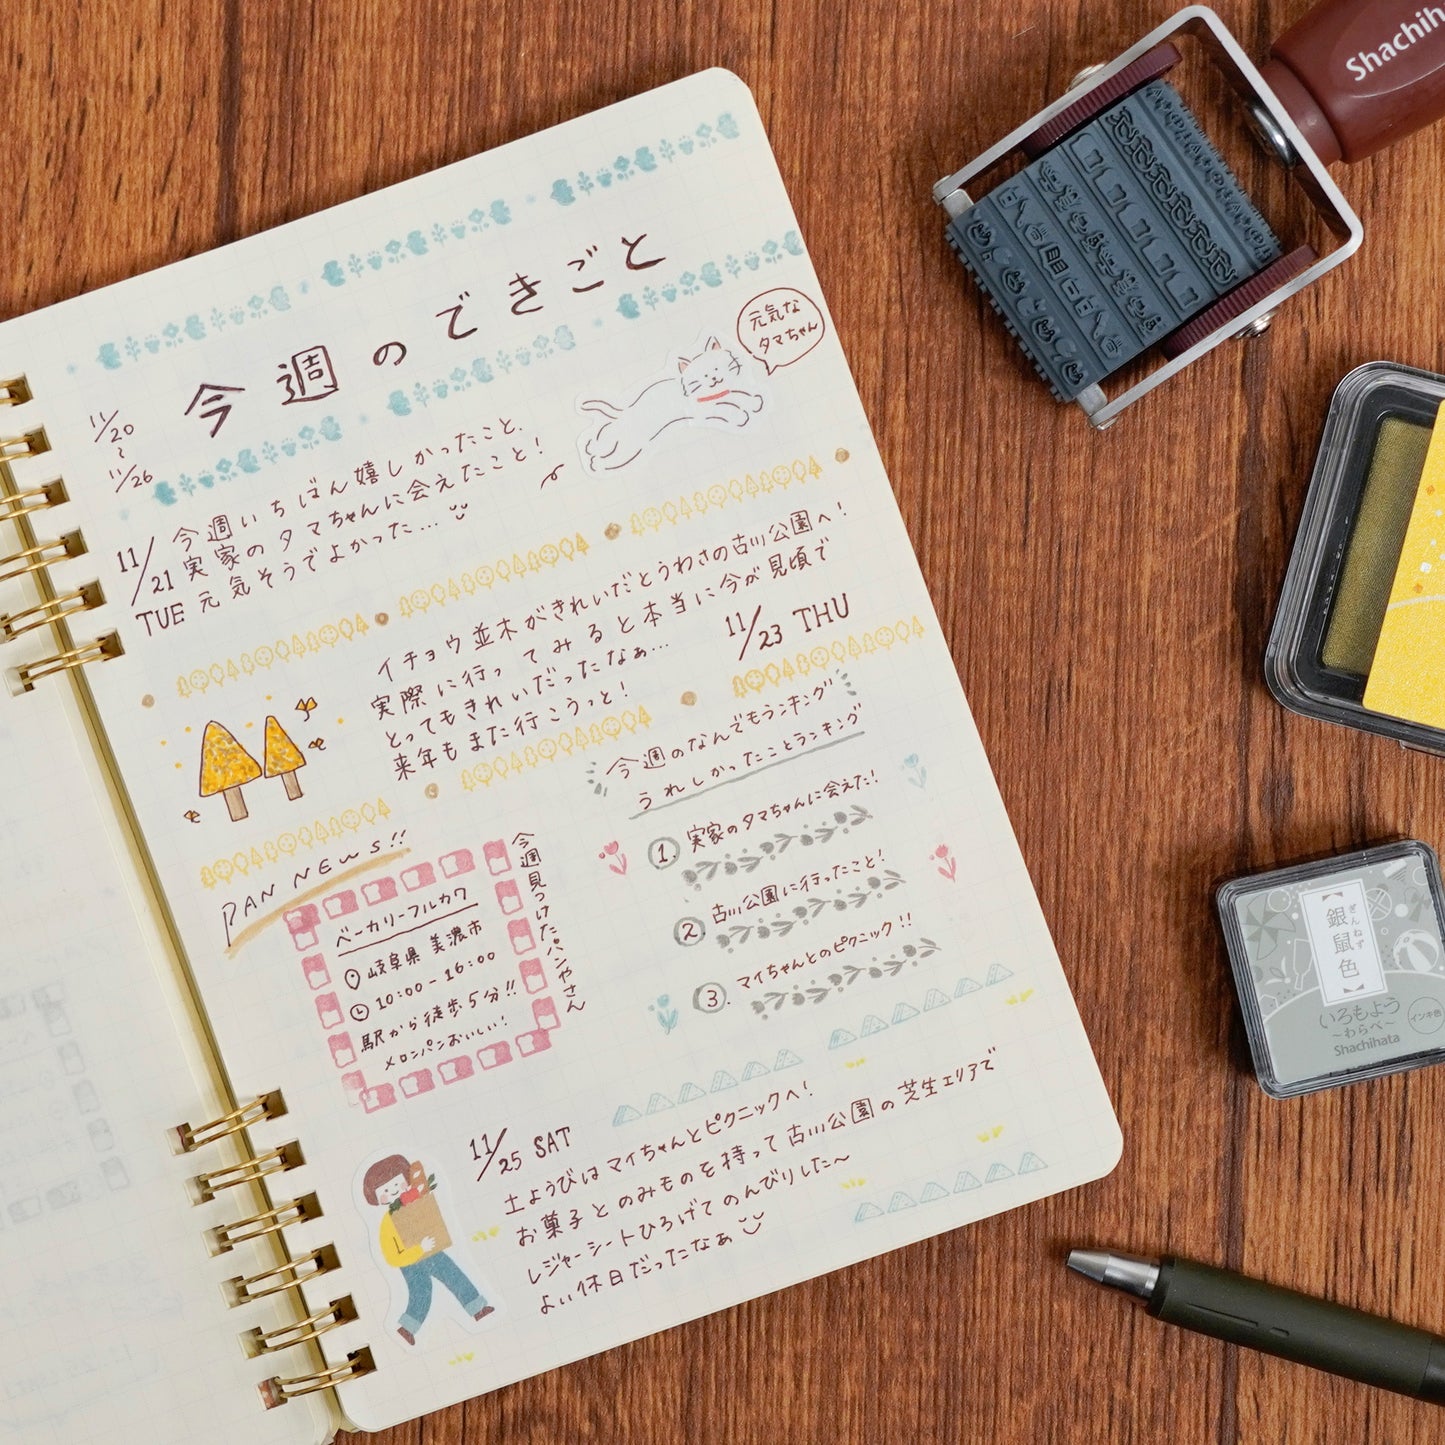 今週のできごと
11/20
〜
11/26
元気な
タマちゃん
11/21
TUE
今週いちばん嬉しかったこと、
実家のタマちゃんに会えたこと!
元気そうでよかった…
イチョウ並木がきれいだとうわさの古川公園へ!
実際に行ってみると本当に今が見頃で
とってもきれいだったなぁ…
来年もまた行こうっと!
11/23 THU
PAN NEWS!!
ベーカリーフルカワ
岐阜県 美濃市
10:00-16:00
駅から徒歩5分!!
メロンパンおいしい!
今週見つけたパンやさん
今週のなんでもランキング
うれしかったことランキング
1. 実家のタマちゃんに会えた!
2. 古川公園に行ったこと!
3. マイちゃんとのピクニック!!
11/25 SAT
土ようびはマイちゃんとピクニックへ!
お菓子とのみものを持って古川公園の芝生エリアで
レジャーシートひろげてのんびりした〜
よい休日だったなぁ
Shachih
銀鼠色
ぎんねず
いろもよう
〜わらべ〜
Shachihata
インキ色